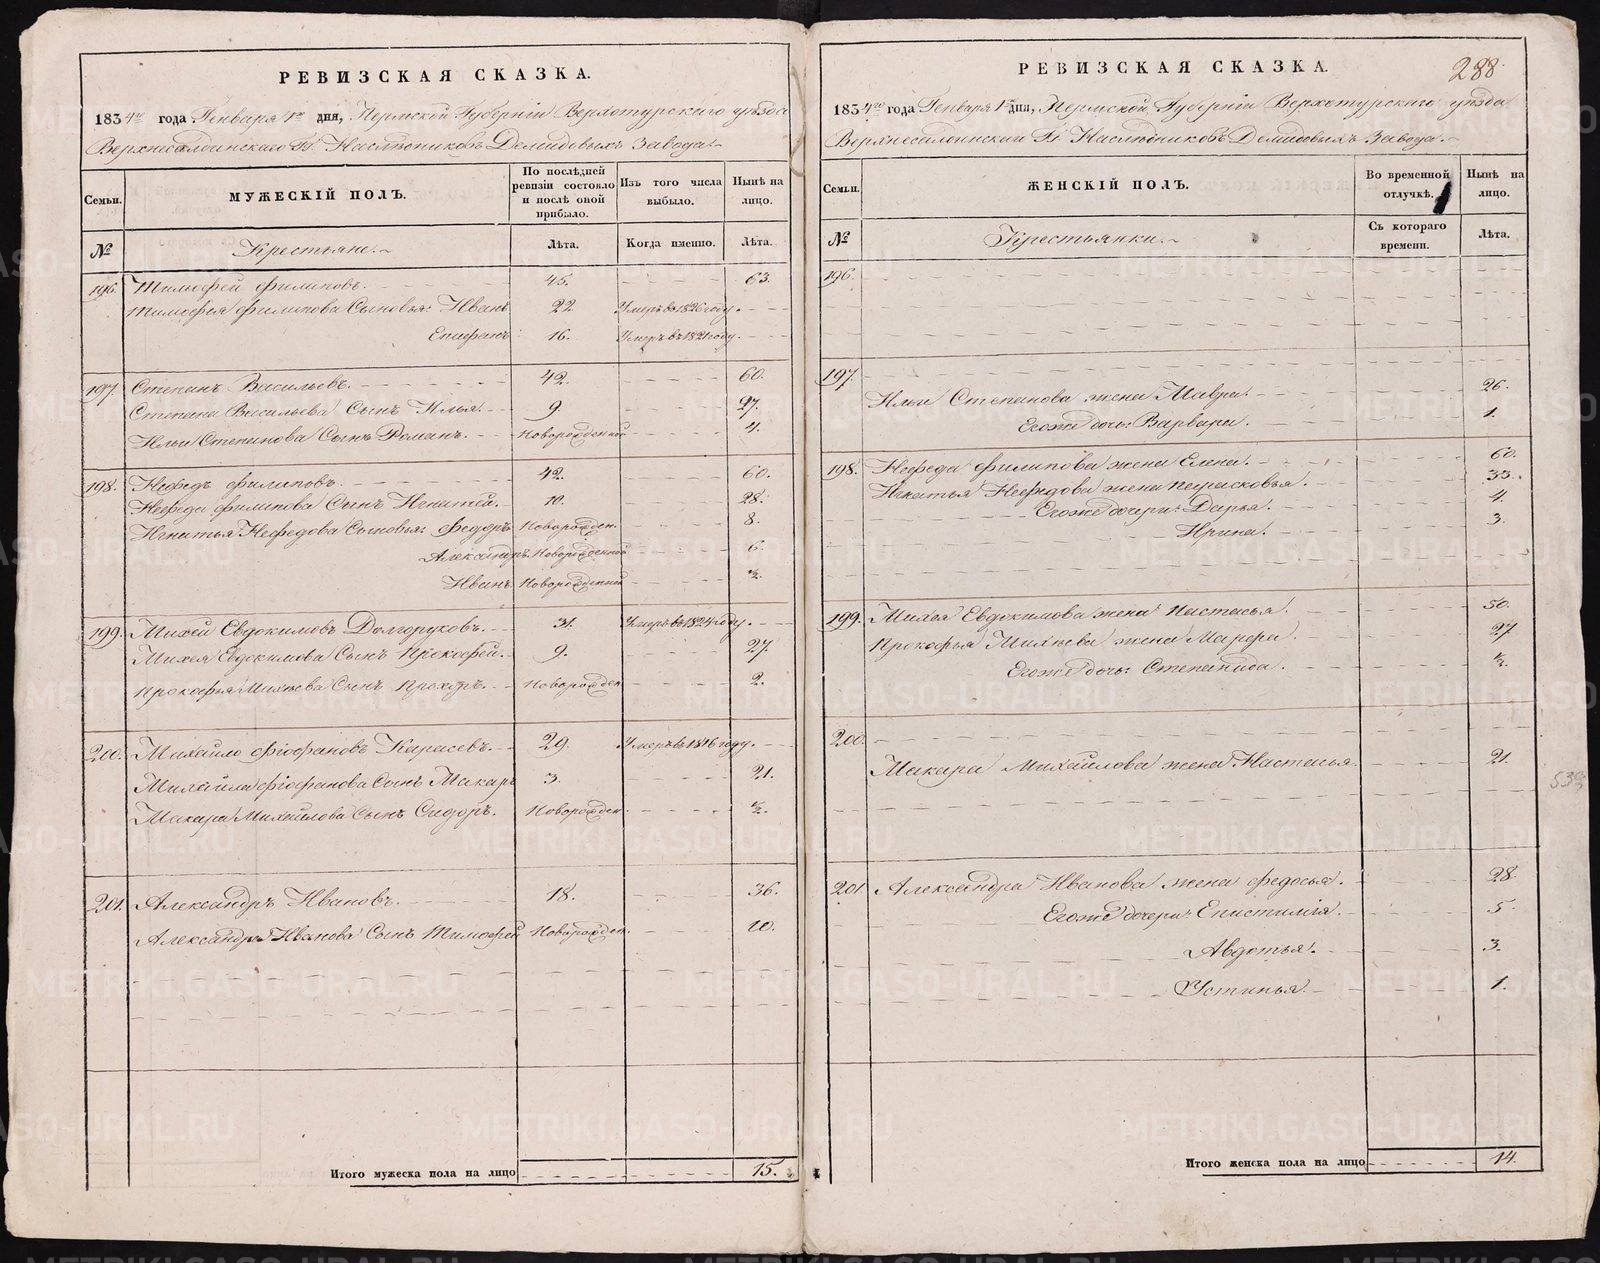 РЕВИЗСКАЯ СКАЗКА.
1834го года Генваря 1го дня, Пермской Губерніи Верхотурскаго уѣзда
Верхнесалдинскаго Гг. Наслѣдниковъ Демидовыхъ Завода.
Семьи.
МУЖЕСКІЙ ПОЛЪ.
По послѣдней ревизіи состояло и послѣ оной прибыло.
Изъ того числа выбыло.
Нынѣ на лицо.
№
Крестьяне.
Лѣта.
Когда именно.
Лѣта.
196. Тимофей Филиповъ. 45. 63.
Тимофея Филипова Сыновья: Иванъ 22. Умеръ въ 1826 году.
Епифанъ 16. Умеръ въ 1821 году.
197. Степанъ Васильевъ. 42. 60.
Степана Васильева Сынъ Илья. 9. 27.
Ильи Степанова Сынъ Романъ. Новорожденной 4.
198. Нефедъ Филиповъ. 42. 60.
Нефеда Филипова Сынъ Игнатей. 10. 28.
Игнатья Нефедова Сыновья: Федоръ Новорожден. 8.
Александръ Новорожденной 6.
Иванъ Новорожденной ½.
199. Михей Евдокимовъ Долгоруковъ. 31. Умеръ въ 1824 году.
Михея Евдокимова Сынъ Прокофей. 9. 27.
Прокофья Михѣева Сынъ Прохоръ. Новорожден. 2.
200. Михайло Фіофановъ Карасевъ. 29. Умеръ въ 1816 году.
Михайла Фіофанова Сынъ Макаръ 3. 21.
Макара Михайлова Сынъ Сидоръ. Новорожден. ½.
201. Александръ Ивановъ. 18. 36.
Александра Иванова Сынъ Тимофей Новорожден. 10.
Итого мужеска пола на лицо 15.
РЕВИЗСКАЯ СКАЗКА.
288.
1834го года Генваря 1го дня, Пермской Губерніи Верхотурскаго уѣзда
Верхнесалдинскаго Гг. Наслѣдниковъ Демидовыхъ Завода.
Семьи.
ЖЕНСКІЙ ПОЛЪ.
Во временной отлучкѣ.
Нынѣ на лицо.
№
Крестьянки.
Съ котораго времени.
Лѣта.
196.
197.
Ильи Степанова жена Мавра. 26.
Егоже дочь: Варвара. 1.
198. Нефеда Филипова жена Елена. 60.
Игнатья Нефедова жена Парасковья. 33.
Егоже дочери: Дарья. 4.
Ирина. 3.
199. Михея Евдокимова жена Настасья. 50.
Прокофья Михѣева жена Марфа. 27
Егоже дочь: Степанида. ½.
200.
Макара Михайлова жена Настасья. 21.
201 Александра Иванова жена Федосья. 28.
Егоже дочери: Епистимія. 5.
Авдотья. 3.
Устинья. 1.
Итого женска пола на лицо 14.
METRIKI.GASO-URAL.RU